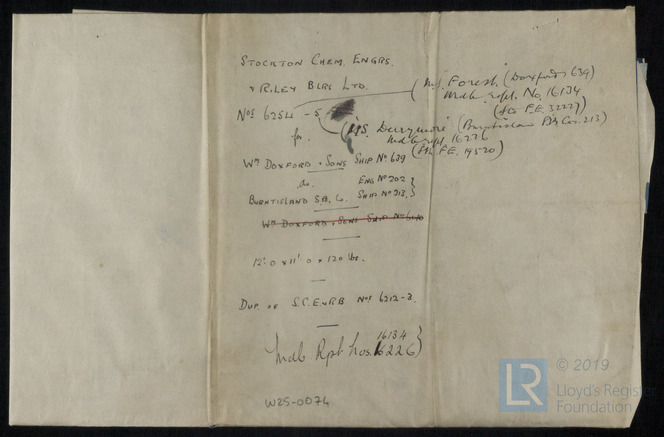 STOCKTON CHEM. ENGRS.
& RILEY BLRS LTD.
Nos 6254 - 5
for
m.s. "Forest" (Doxfords 639)
Mdb rept. No. 16134
(Lts F.E. 32227)
"Derrymore" (Burntisland Sb Co. 213)
Mdb rept 16226
F.E. 19520)
Wm DOXFORD & SONS SHIP No 639
do. ENG No 202
BURNTISLAND S.B. Co. SHIP No 213
Wm DOXFORD & SONS SHIP No 640
12'.0 x 11'.0 x 120 lbs.
DUP. OF S.C.E & RB Nos 6212-3.
16134
Mdb Rpt Nos. 16226
W25-0074
LR
© 2019
Lloyd's Register
Foundation